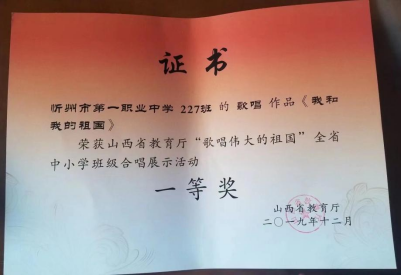 证书
忻州市第一职业中学 227班 的 歌唱 作品《我和
我的祖国》
荣获山西省教育厅“歌唱伟大的祖国”全省
中小学班级合唱展示活动
一等奖
山西省教育厅
二〇一九年十二月